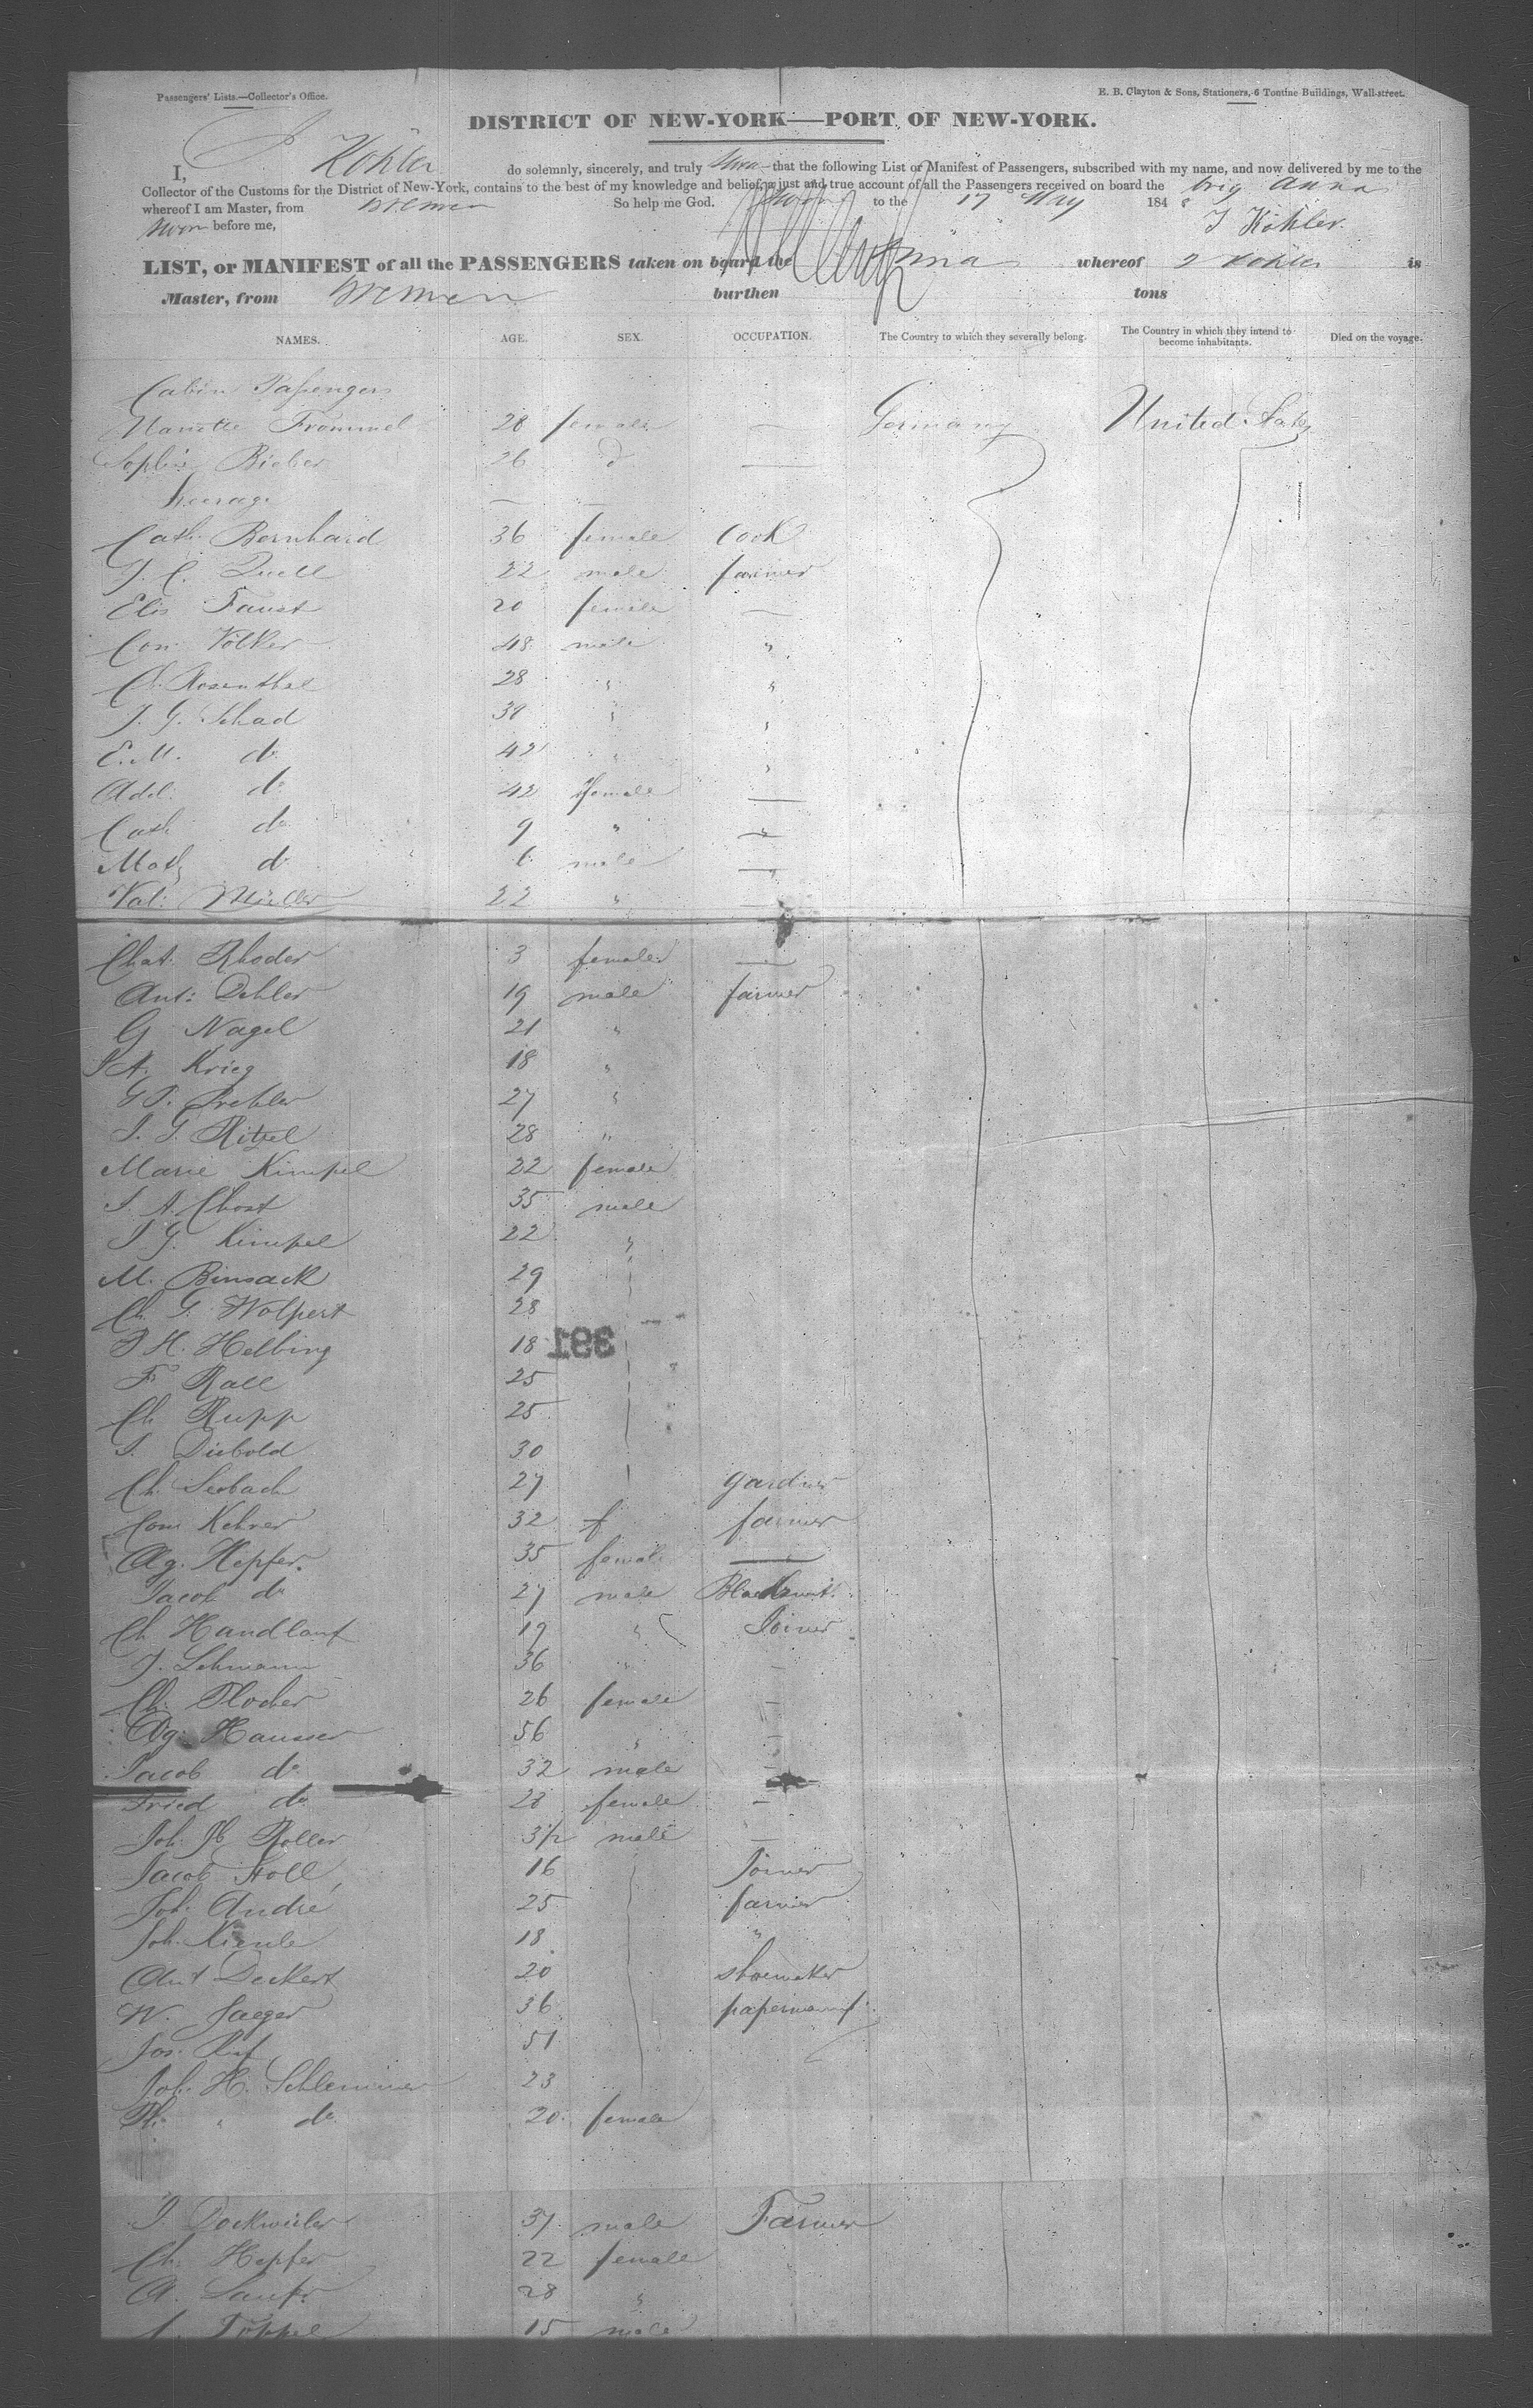 Passengers' Lists.—Collector's Office.
E. B. Clayton & Sons, Stationers, 6 Tontine Buildings, Wall-street.
DISTRICT OF NEW-YORK—PORT OF NEW-YORK.
I, J Köhler do solemnly, sincerely, and truly that the following List or Manifest of Passengers, subscribed with my name, and now delivered by me to the
Collector of the Customs for the District of New-York, contains to the best of my knowledge and belief, a just and true account of all the Passengers received on board the brig Anna
whereof I am Master, from Bremen So help me God. Sworn to the 17 May 1848
Sworn before me, J Köhler
LIST, or MANIFEST of all the PASSENGERS taken on board the Anna whereof J Köhler is
Master, from Bremen burthen tons
NAMES. AGE. SEX. OCCUPATION. The Country to which they severally belong. The Country in which they intend to become inhabitants. Died on the voyage.
Cabin Passengers
Nanette Frommel 28 female — Germany United States
Sophie Bieber 26 d —
Steerage —
Cath. Bernhard 36 female Cook
J. C. Quell 22 male farmer
Elis Faust 20 female —
Con. Völker 48 male "
C. Rosenthal 28 " "
J. G. Schad 39 " "
E. M. do 42 " "
Adel. do 42 female —
Cath do 9 " "
Math do 6 male —
Val: Müller 22 " —
Chat. Rhoder 3 female —
Ant: Dehler 19 male farmer
G Nagel 21 "
A. Krieg 18 "
27 "
J. G. Ritzel 28 "
Marie Kimpel 22 female
J. A. Chost 35 male
J G. Kimpel 22 "
M. Binsack 29
Ch. G. Wolpert 28
J H. Helbing 18
391
F Rall 25
Ch Rupp 25
J. Diebold 30
Ch. Seebach 27 gardner
Com Kehrer 32 f farmer
Ag. Hepfer. 35 female —
Jacob do 27 male Blacksmit.
Ch Handlauf 19 " Joiner
J. Lehmann 36 " —
Ch. Plocher 26 female —
Ag. Hausser 56 " —
Jacob do 32 male —
Fried do 28 female —
Joh. Jb Roller 3½ male —
Jacob Stoll, 16 Joiner
Joh. André 25 farmer
Joh. Kienle 18 "
Ant Deckert 20 shoemaker
W. Jaeger 36 papermanf.
Jos. Ruf 51
Joh. H. Schlemmer 23
" do 20 female
J. Dockweiler 37 male Farmer
Ch. Hepfer 22 female
A. 28 "
Töppel 15 male